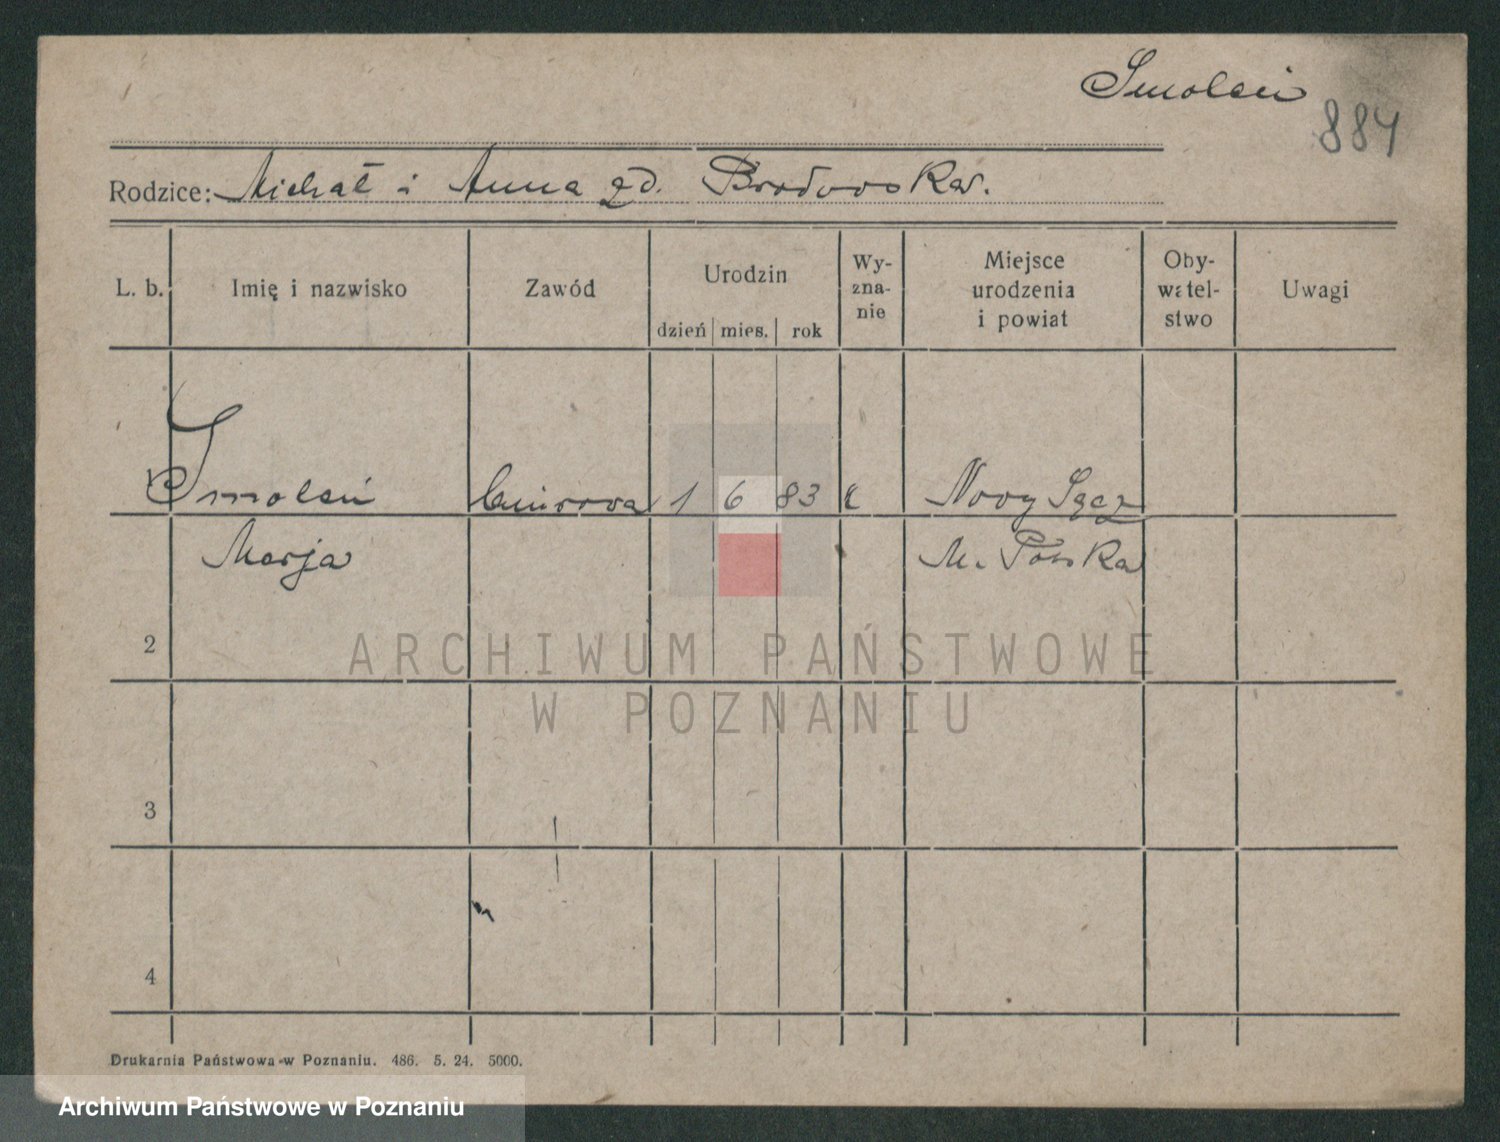 Smoleń
884
Rodzice: Michał i Anna zd. Brodowska.
L. b. Imię i nazwisko Zawód Urodzin dzień mies. rok Wy-zna-nie Miejsce urodzenia i powiat Oby-watel-stwo Uwagi
Smoleń 1 6 83 Nowy Sącz
Marja M. Polska
2
3
4
ARCHIWUM PAŃSTWOWE
W POZNANIU
Drukarnia Państwowa w Poznaniu. 486. 5. 24. 5000.
Archiwum Państwowe w Poznaniu